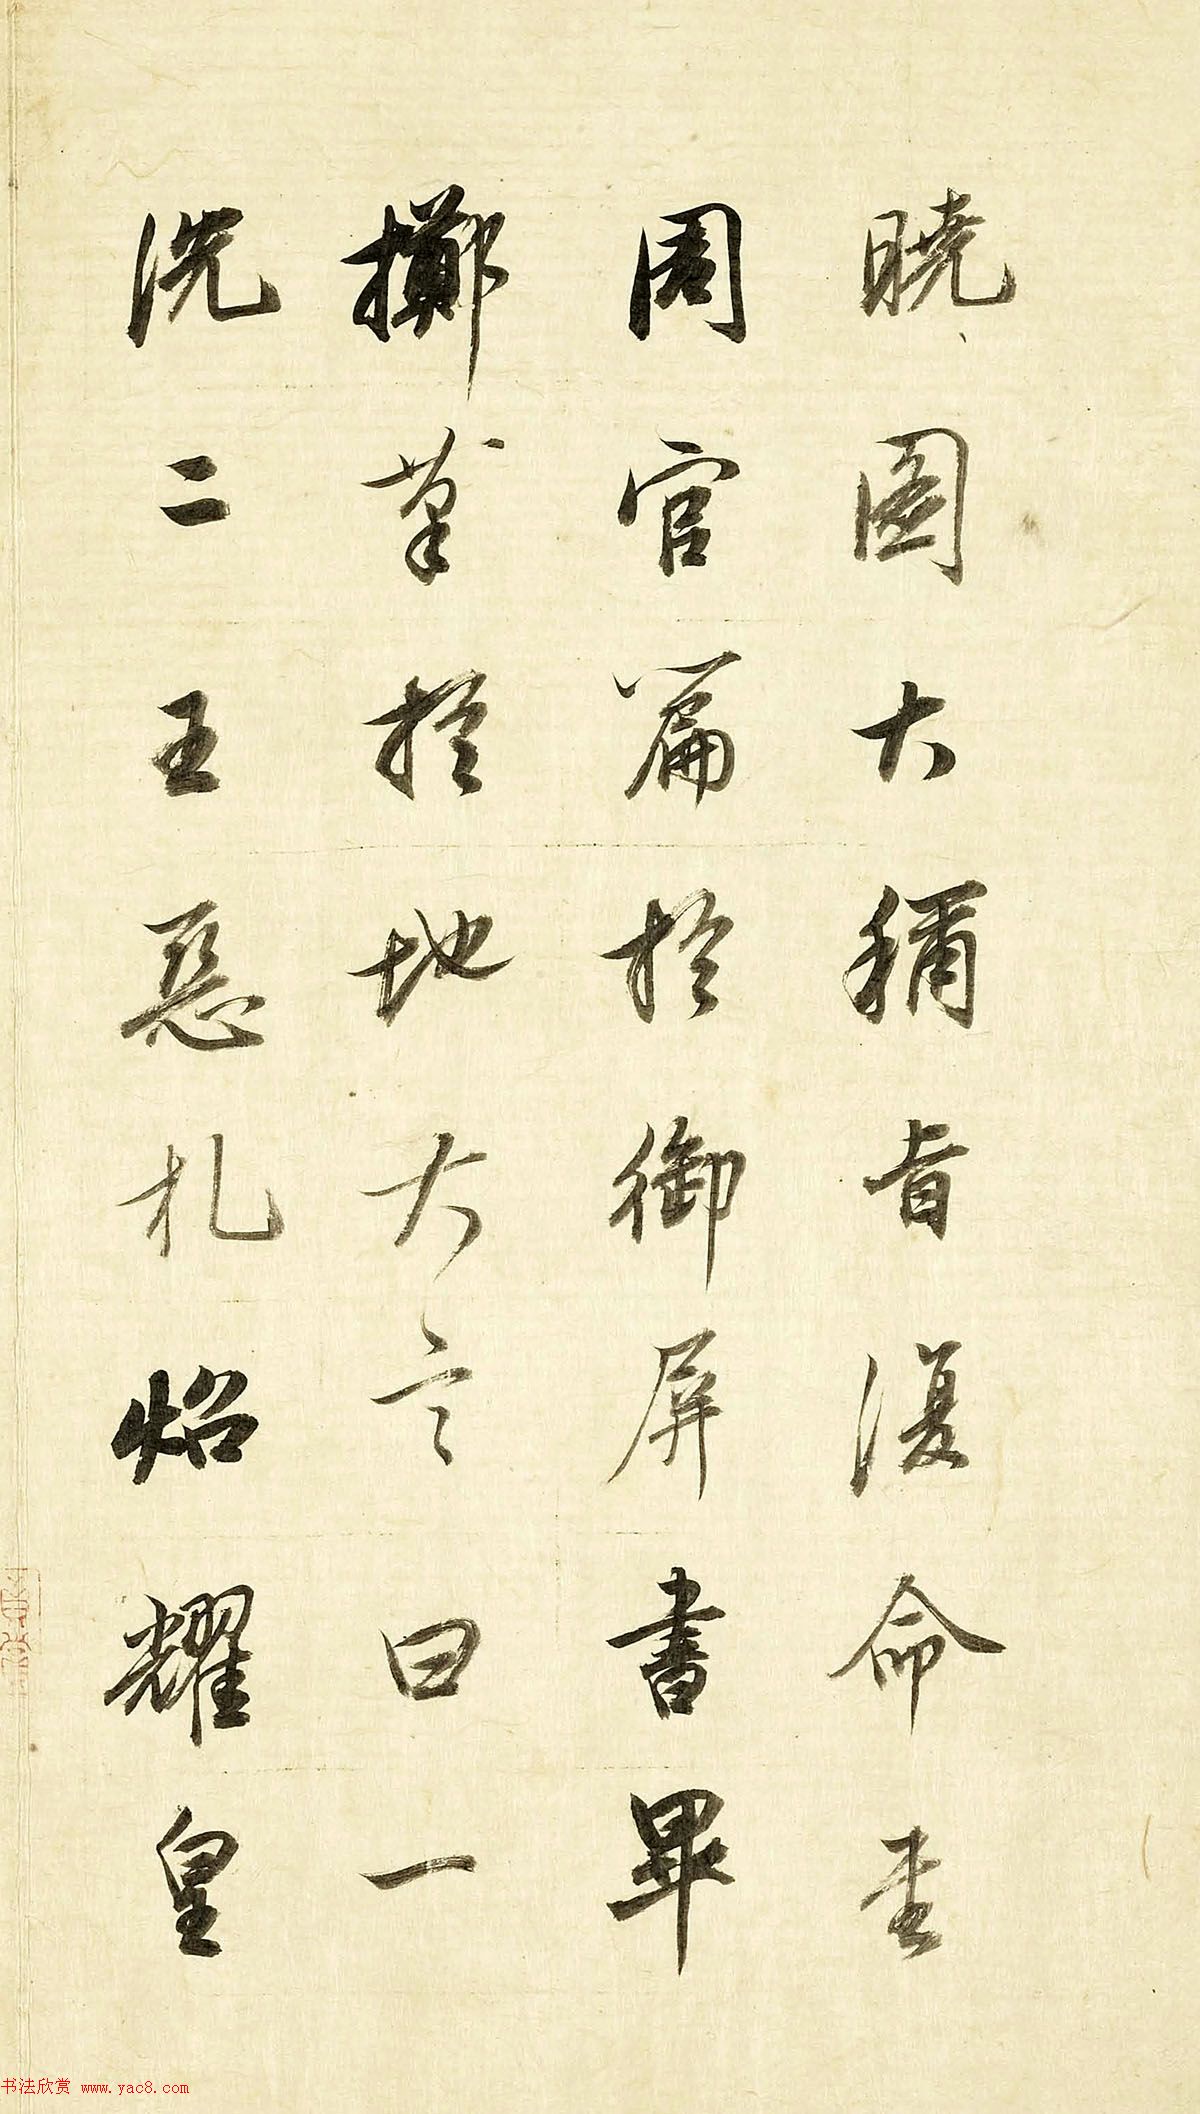 曉圖大稱旨復命書
周官篇於御屏書畢
擲筆於地大言曰一
洗二王惡札照耀皇
书法欣赏 www.yac8.com